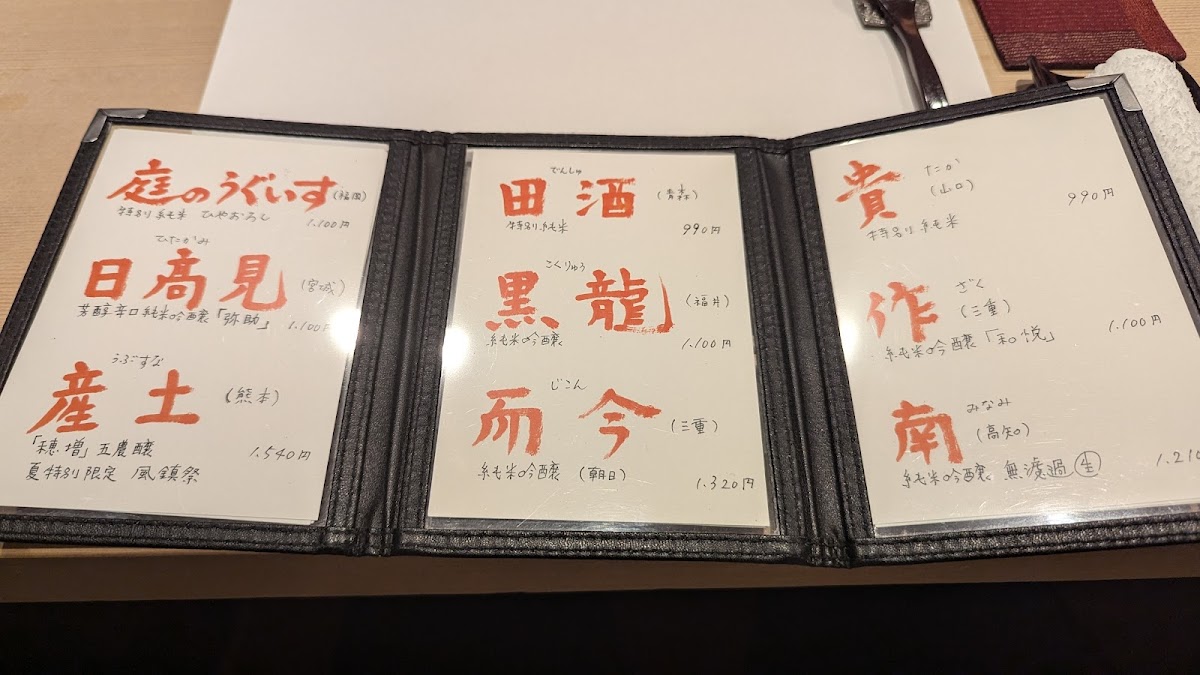 庭のうぐいす (福岡)
特別純米 ひやおろし 1.100円
ひたかみ
日髙見 (宮城)
芳醇辛口純米吟醸「弥助」 1.100円
うぶすな
産土 (熊本)
「穂増」五農醸 1.540円
夏特別限定 風鎮祭
でんしゅ
田酒 (青森)
特別純米 990円
こくりゅう
黒龍 (福井)
純米吟醸 1.100円
じこん
而今 (三重)
純米吟醸 (朝日) 1.320円
たか
貴 (山口) 990円
特別純米
ざく
作 (三重)
純米吟醸「和悦」 1.100円
みなみ
南 (高知)
純米吟醸 無濾過 生 1.210